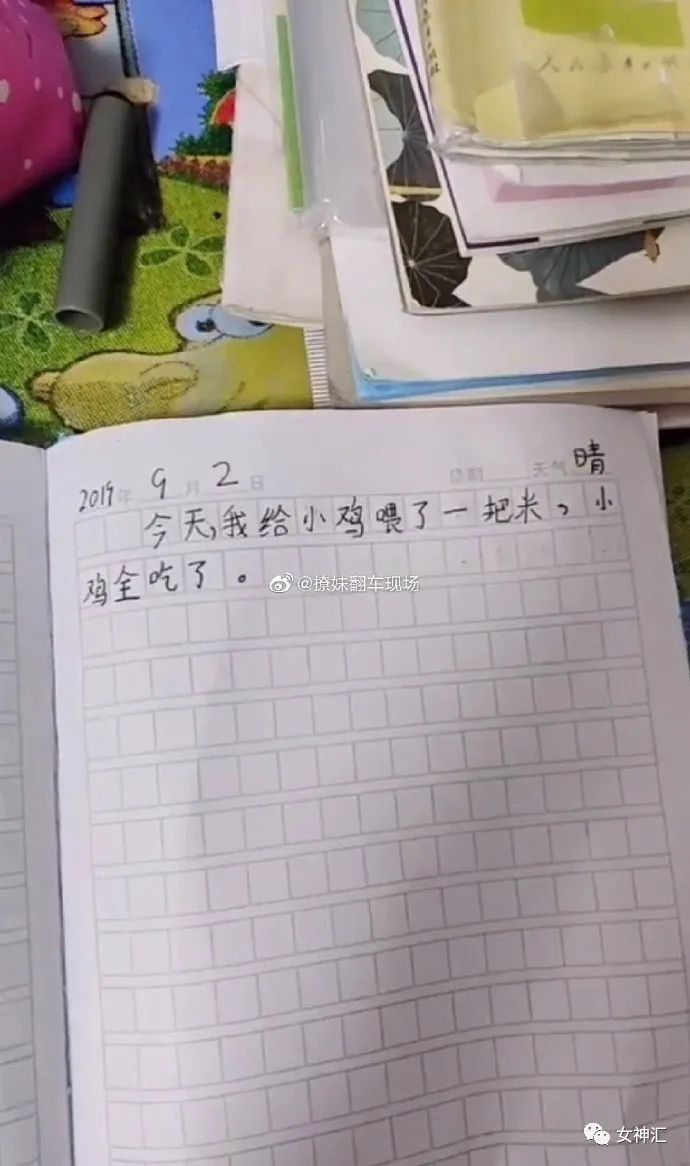 人民教育出版社
2019年 9月 2日 星期 天气 晴
今天,我给小鸡喂了一把米,小
鸡全吃了。
@撩妹翻车现场
女神汇